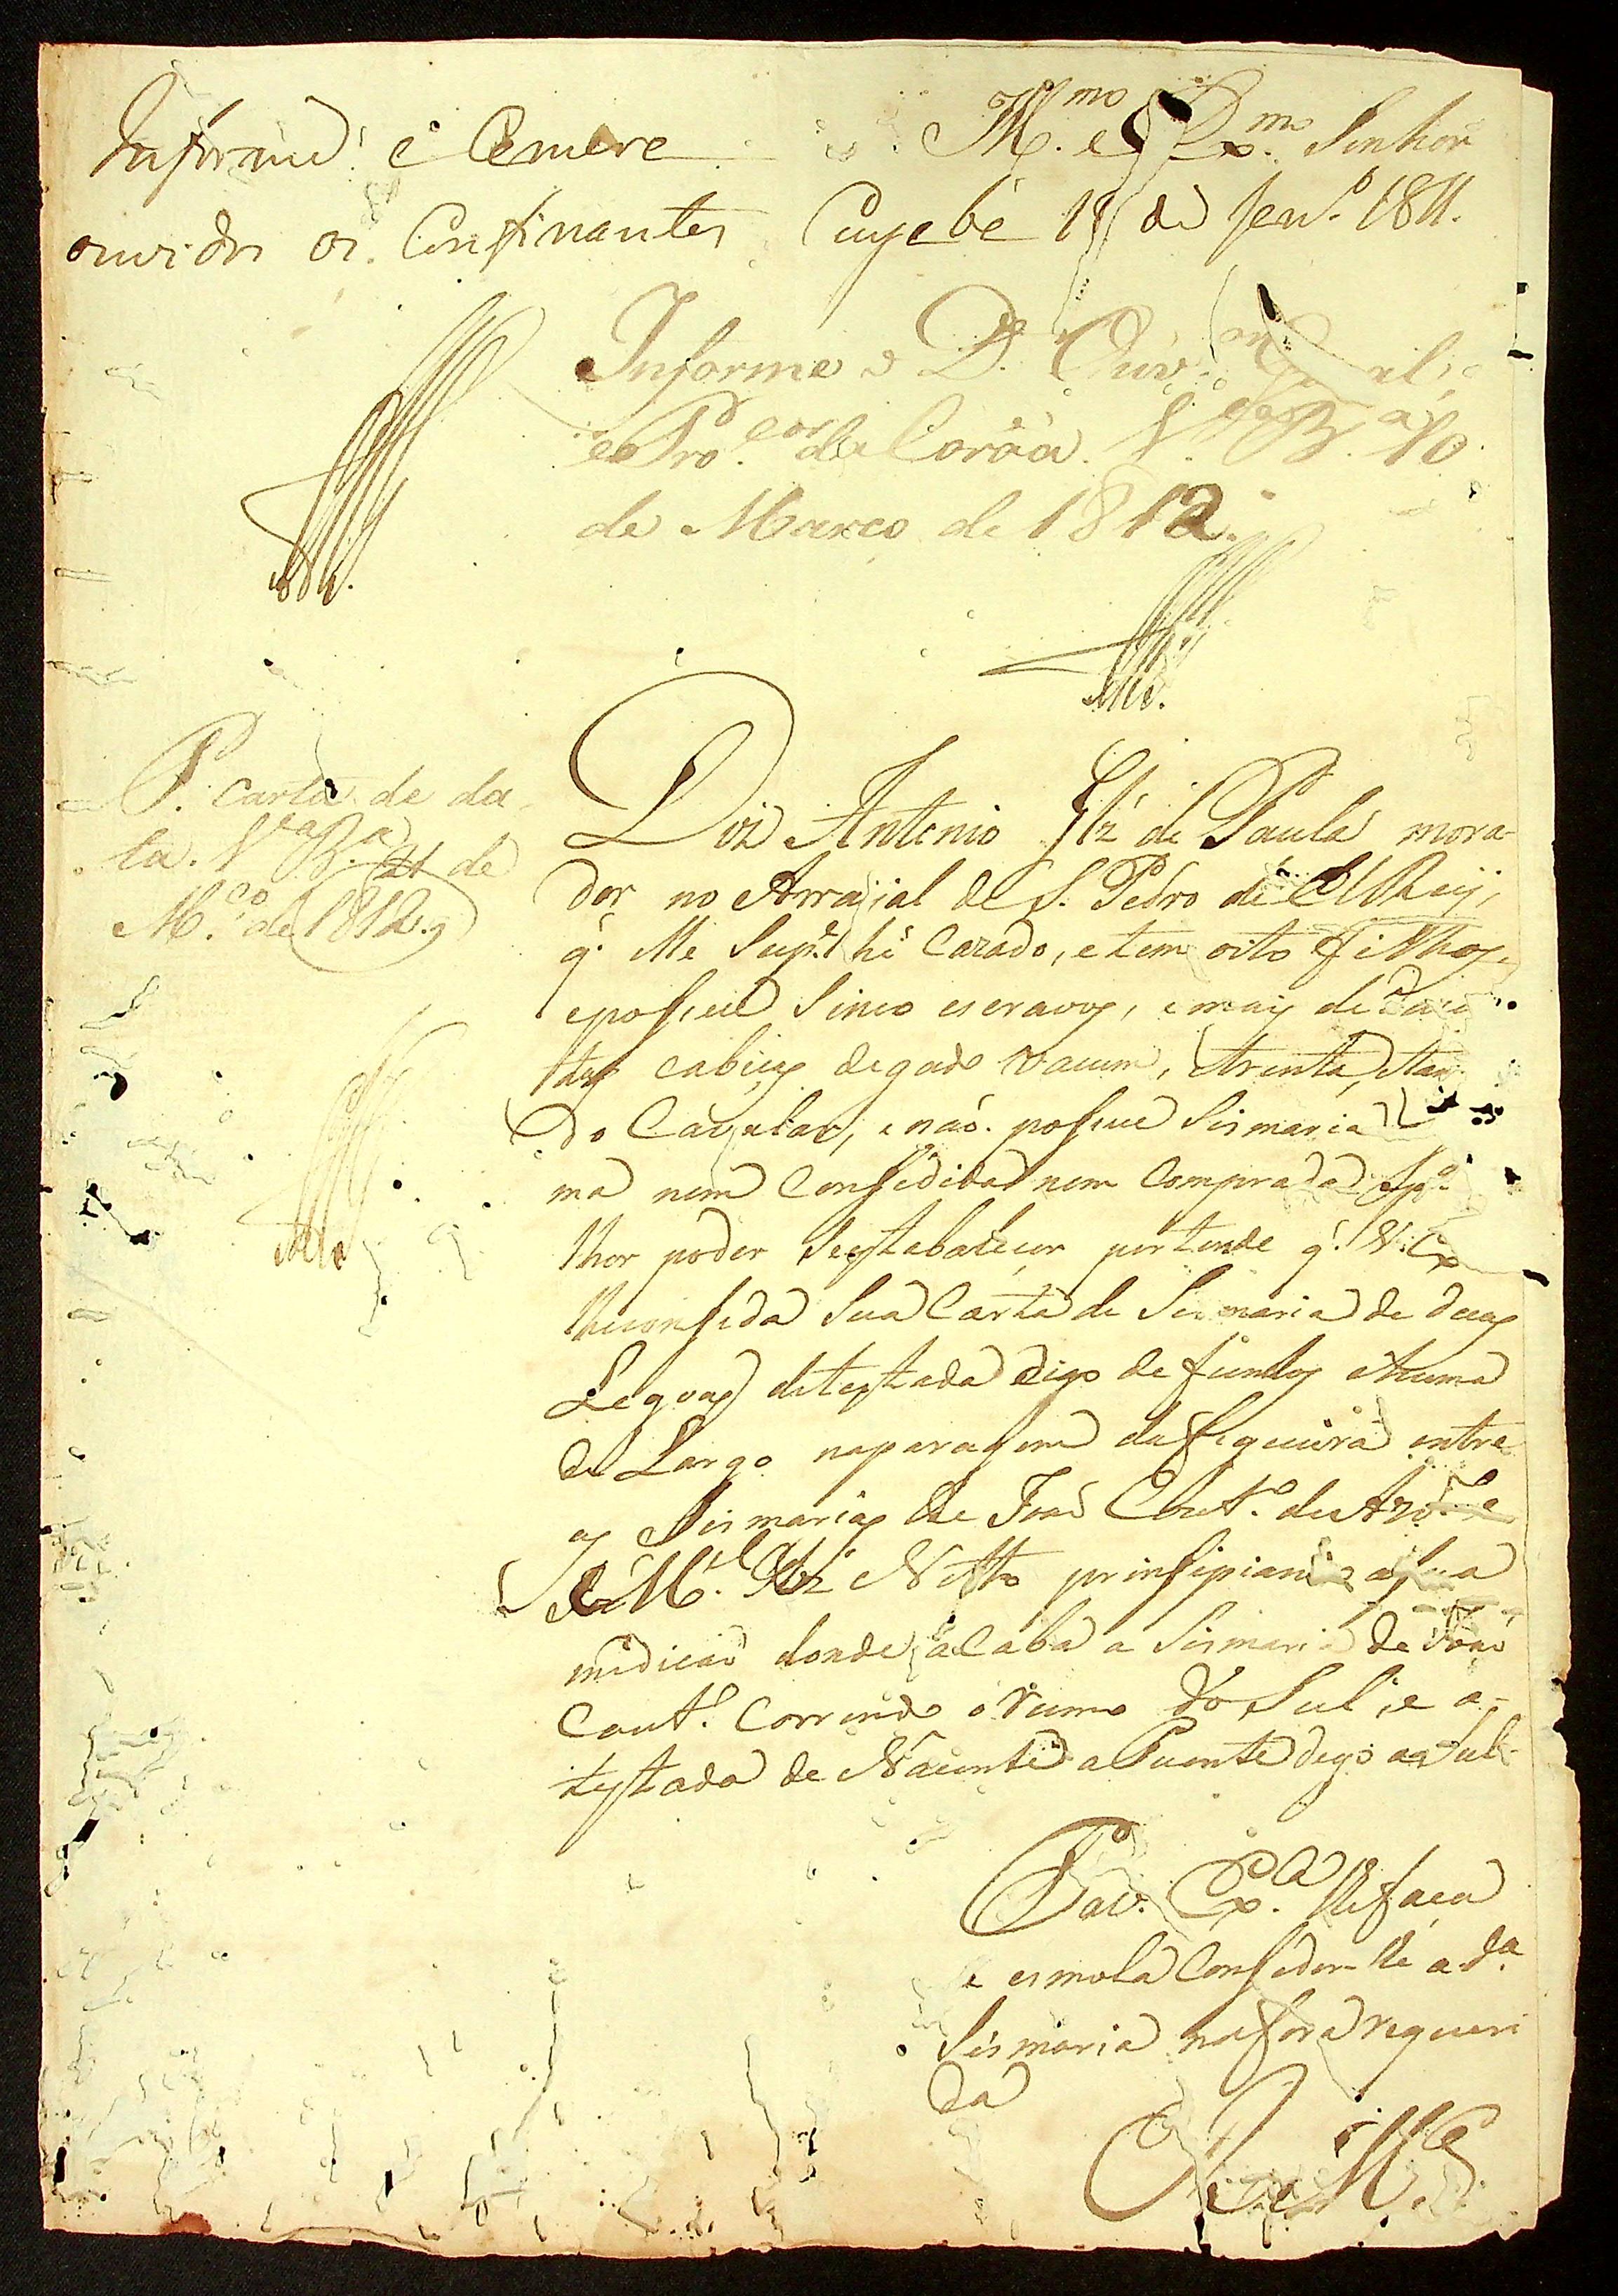 Informe a Camera
Ill.mo e Ex.mo Senhor
ouvidos os Confinantes Cuyabá 11 de Jan.o 1811.
Informe o D.r Ouv.or Geral,
e Pro.cor da Coroa. V.a B.a 10
de Março de 1812.
P. carta de da-
ta. V.a B.a 21 de
M.ço de 1812.
Diz Antonio de Paula mora-
dor no Arraial de S. Pedro de El Rey,
q. elle Sup.e hé cazado, e tem oito filhos,
epossue sinco escravos, e mais de
tas cabiças degado vacum, trinta,
do Cavalar, e não possue Sismaria
ma nem Consedida nem Comprada
lhor poder Sestabalecer pertende q. V. Ex
lheconseda Sua Carta de Sismaria de duas
Legoas detestada digo de fundos ehuma
de Largo naparagem da figueira entre
as Sismarias de João Cout.o de
e M.el Netto prinsipiando asua
midicão donde acaba a Sismaria de João
Cout.o Correndo o rumo do Sul, e a-
testada de Nacente a Puente digo ao Sul-
P.a V. Ex.a lhefaça
a esmola Conseder-lhe a d.a
Sismaria nafora requeri
da
E R M.ce